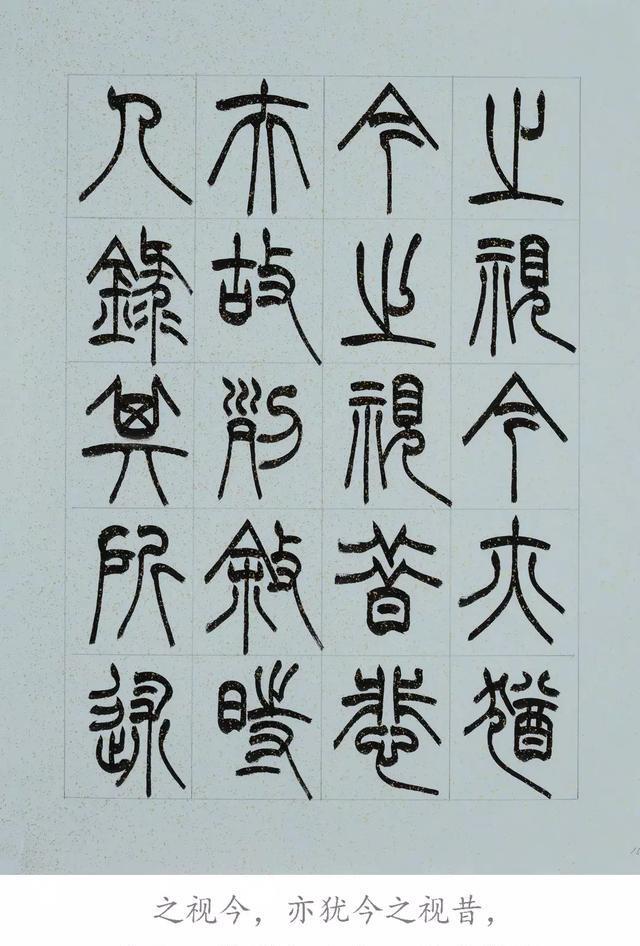 之視今亦猶
今之視昔悲
夫故列敘時
人錄其所述
之视今，亦犹今之视昔，